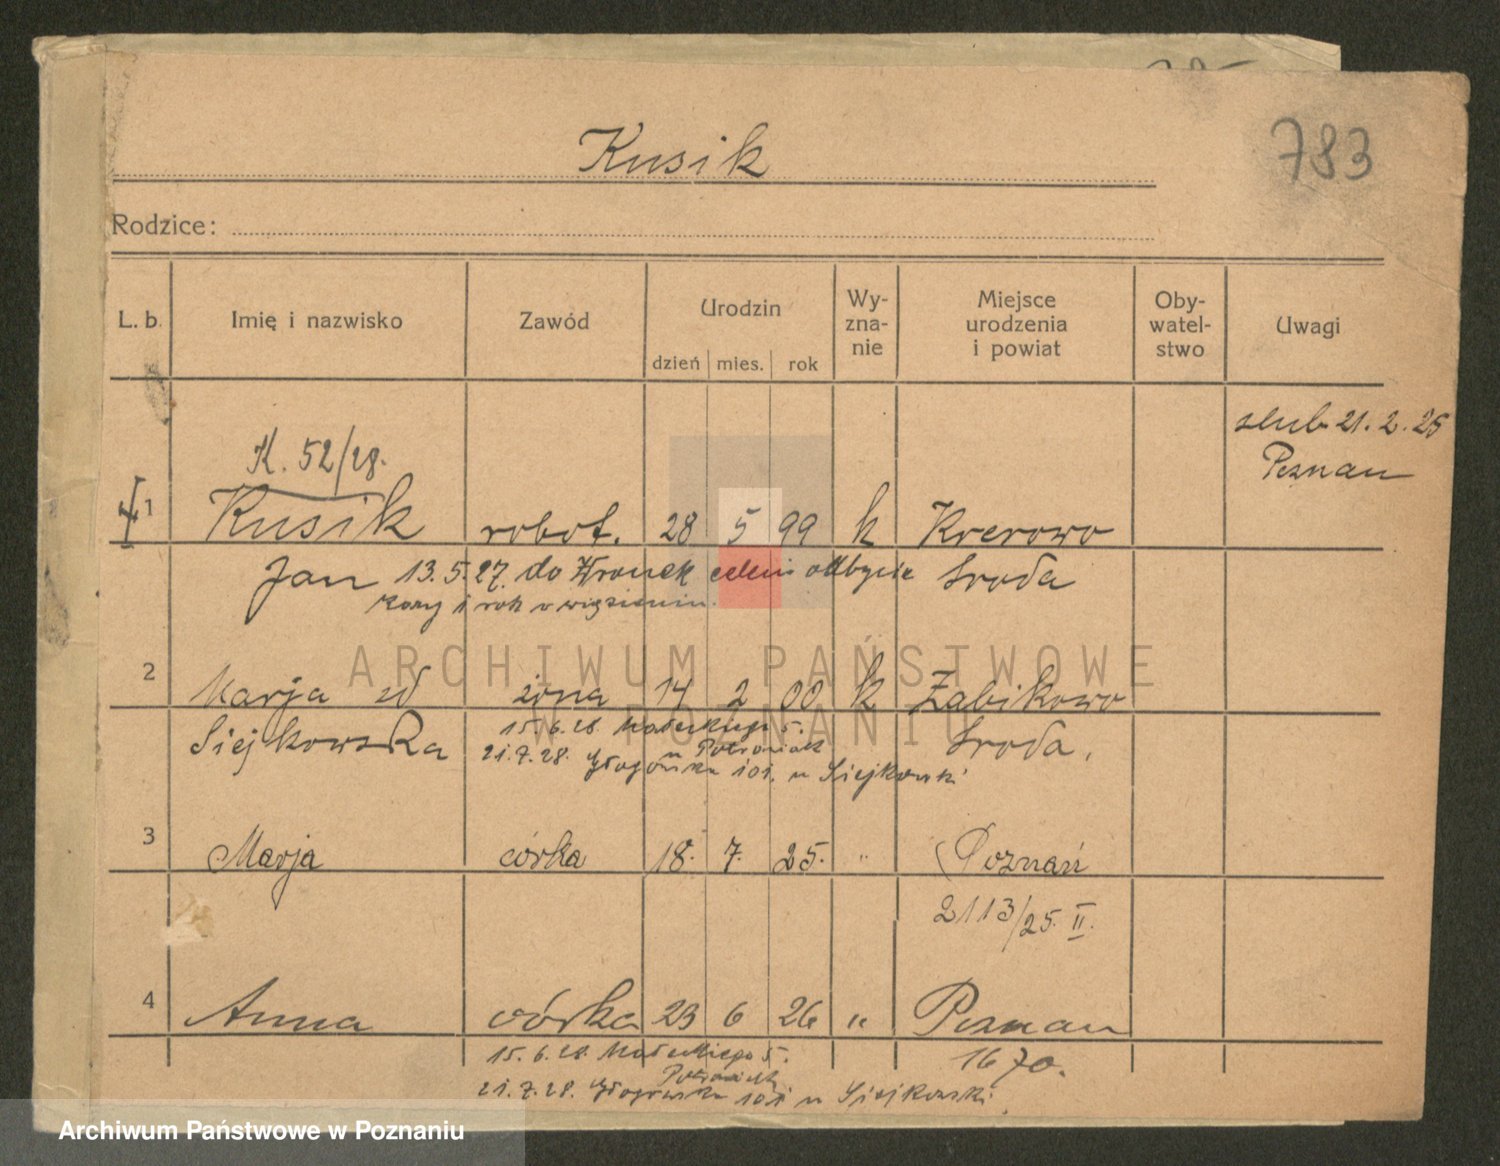 783
Kusik
Rodzice:
L. b. Imię i nazwisko Zawód Urodzin dzień mies. rok Wy-zna-nie Miejsce urodzenia i powiat Oby-watel-stwo Uwagi
ślub 21. 2. 25
Poznan
K. 52/28.
1 Kusik robot. 28 5 99 k Krerowo
Jan 13.5.27. do Wronek celem odbycia Sroda
kary 1 rok więzienia.
ARCHIWUM PAŃSTWOWE
W POZNANIU
2 Marja zd żona 14 2 00 k Żabikowo
Siejkowska 15.6.28. Małeckiego 5. Sroda.
u Potroniak
21.7.28. Głogowska 101. u Siejkowski
3 Marja córka 18. 7. 25. " Poznań
2113/25. II.
4 Anna córka 23 6 26 " Poznan
15.6.28. Małeckiego 5. 1670.
Potroniak
21.7.28. Głogowska 101 u Siejkowski.
Archiwum Państwowe w Poznaniu